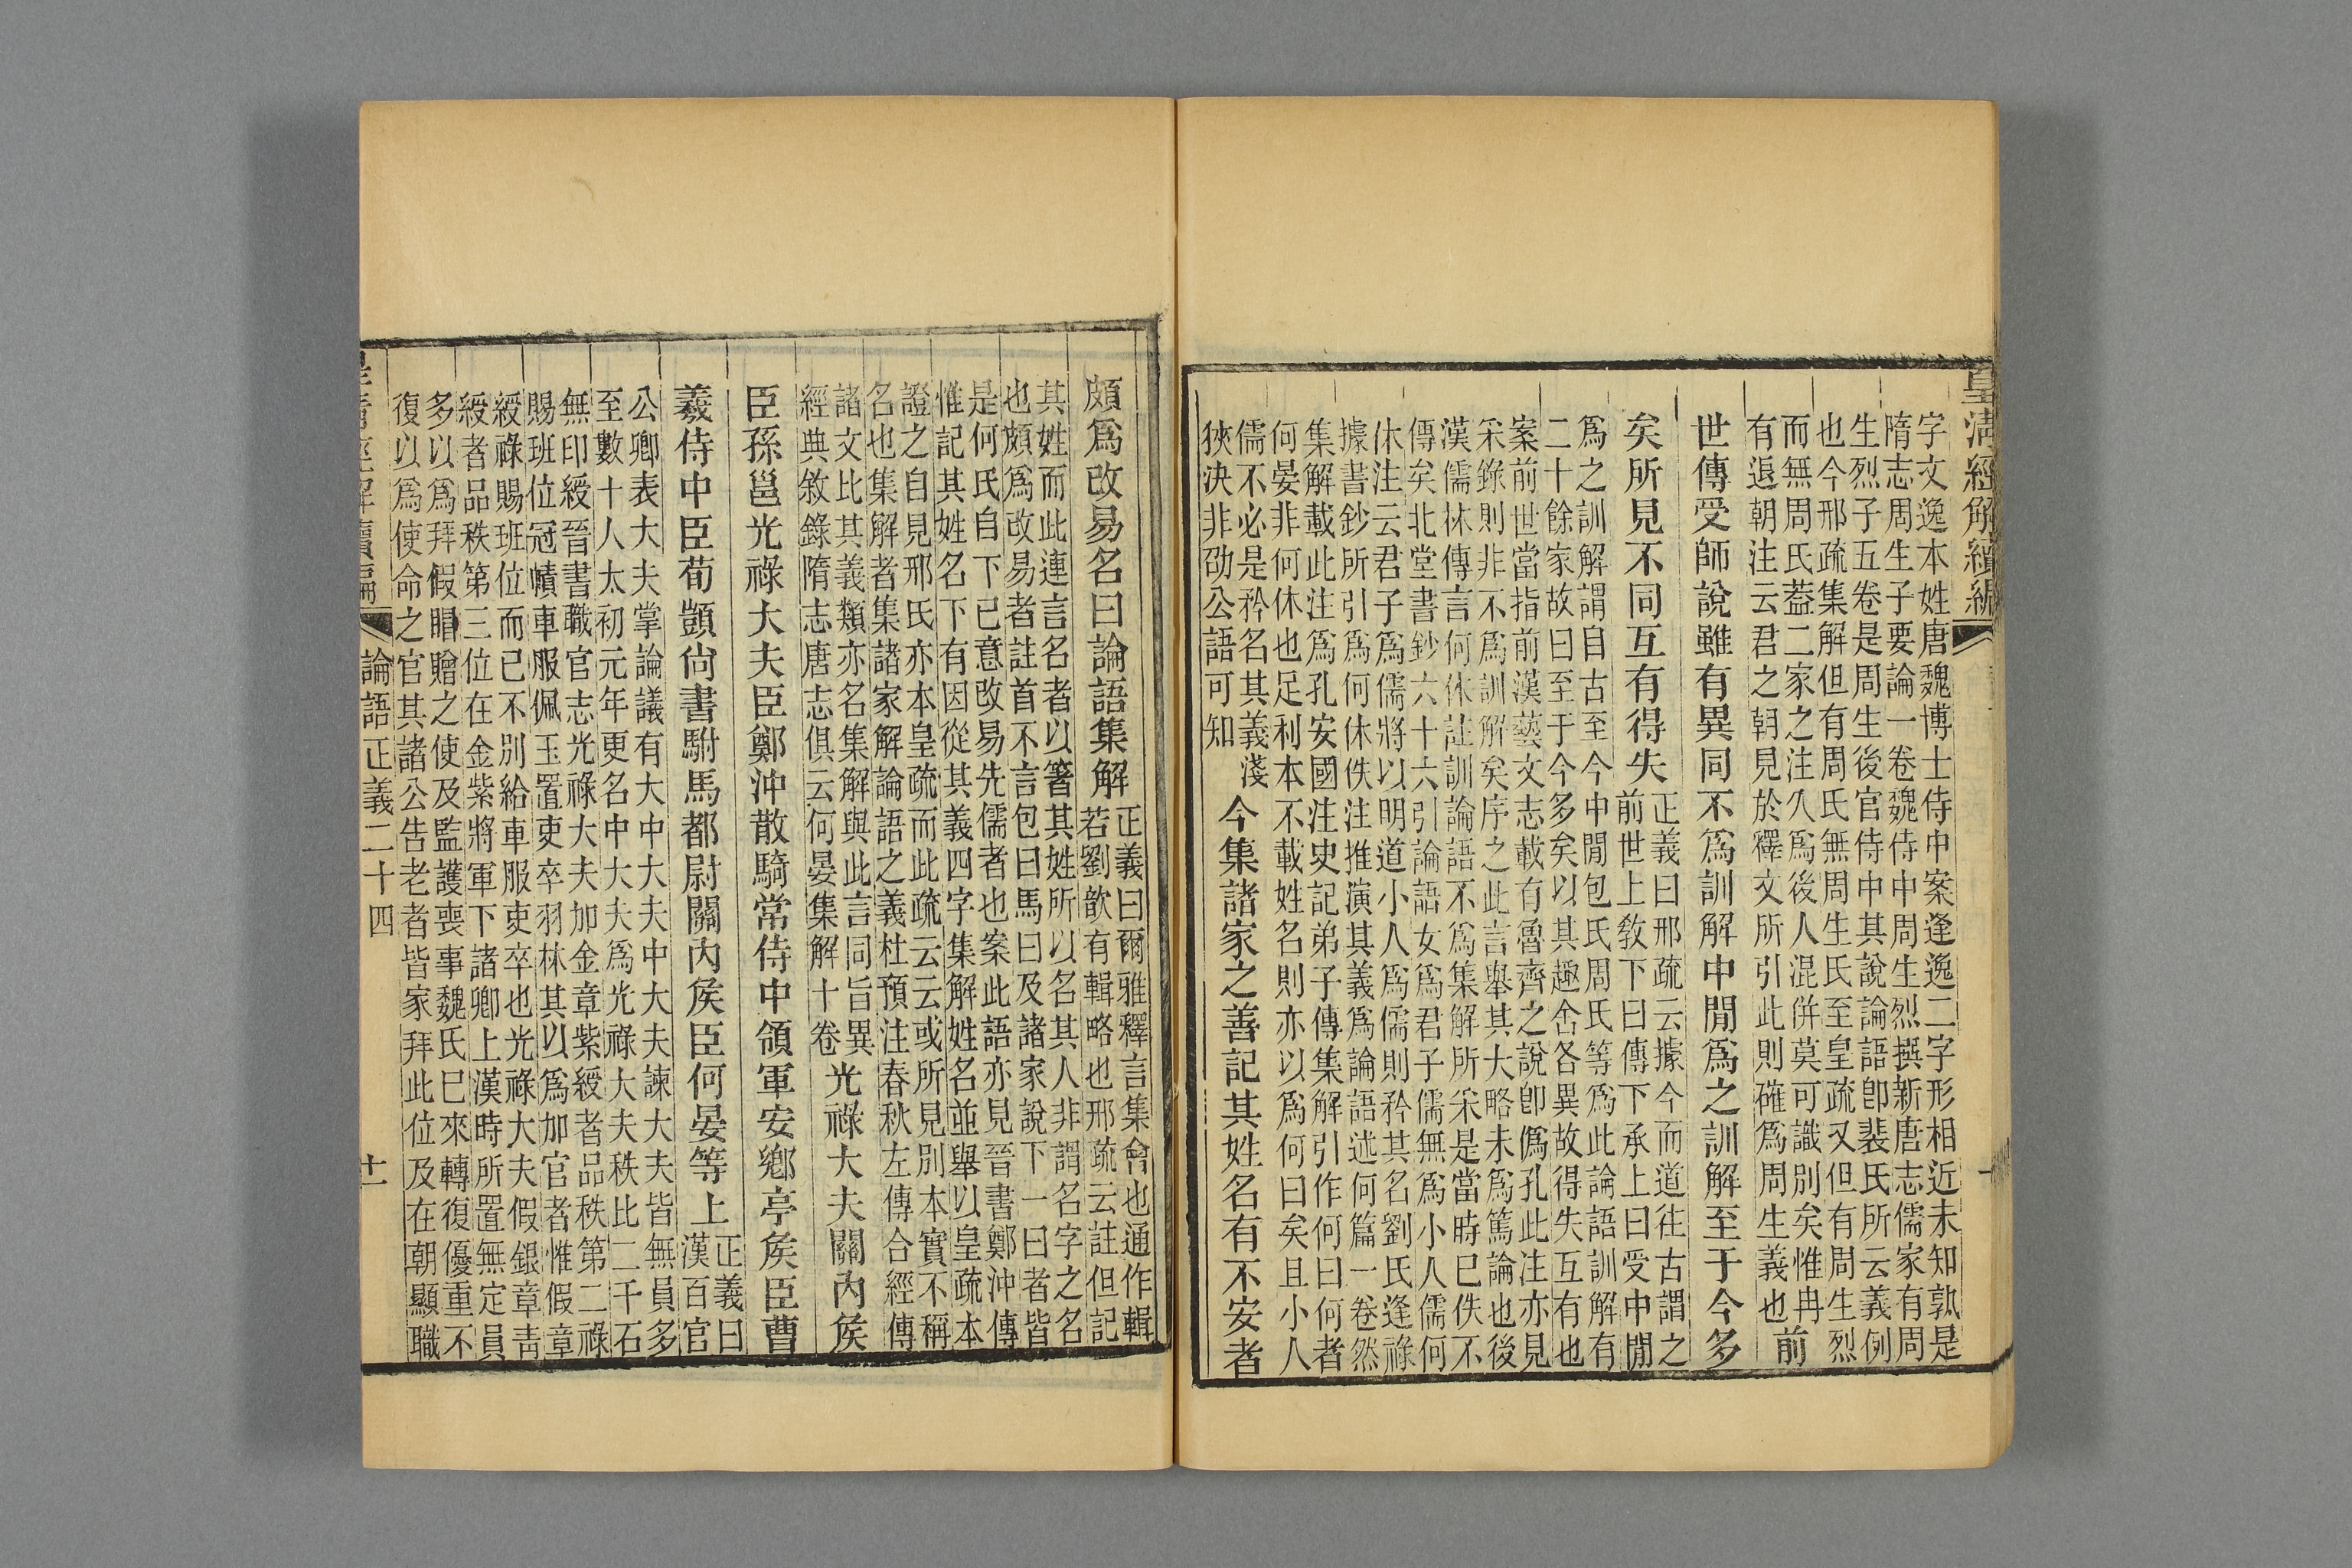 皇清經解續編
字文逸本姓唐魏博士侍中案逢逸二字形相近未知孰是
隋志周生子要論一卷魏侍中周生烈撰新唐志儒家有周
生烈子五卷是周生後官侍中其說論語卽裴氏所云義例
也今邢疏集解但有周氏無周生氏至皇疏又但有周生烈
而無周氏葢二家之注久爲後人混併莫可識別矣惟冉
有退朝注云君之朝見於釋文所引此則確爲周生義也前
世傳受師說雖有異同不爲訓解中閒爲之訓解至于今多
矣所見不同互有得失正義曰邢疏云據今而道往古謂之
前世上敎下曰傳下承上曰受中閒
爲之訓解謂自古至今中閒包氏周氏等爲此論語訓解有
二十餘家故曰至于今多矣以其趣舍各異故得失互有也
案前世當指前漢藝文志載有魯齊之說卽僞孔此注亦見
采錄則非不爲訓解矣序之此言舉其大略未爲篤論也後
漢儒林傳言何休註訓論語不爲集解所采是當時已佚不
傳矣北堂書鈔六十六引論語女爲君子儒無爲小人儒何
休注云君子爲儒將以明道小人爲儒則矜其名劉氏逢祿
據書鈔所引爲何休佚注推演其義爲論語述何篇一卷然
集解載此注爲孔安國注史記弟子傳集解引作何曰何者
何晏非何休也足利本不載姓名則亦以爲何曰矣且小人
儒不必是矜名其義淺
狹決非劭公語可知今集諸家之善記其姓名有不安者
頗爲改易名曰論語集解正義曰爾雅釋言集會也通作輯
若劉歆有輯略也邢疏云註但記
其姓而此連言名者以箸其姓所以名其人非謂名字之名
也頗爲改易者註首不言包曰馬曰及諸家說下一曰者皆
是何氏自下已意改易先儒者也案此語亦見晉書鄭沖傳
惟記其姓名下有因從其義四字集解姓名並舉以皇疏本
證之自見邢氏亦本皇疏而此疏云云或所見別本實不稱
名也集解者集諸家解論語之義杜預注春秋左傳合經傳
諸文比其義類亦名集解與此言同旨異
經典敘錄隋志唐志俱云何晏集解十卷光祿大夫關內矦
臣孫邕光祿大夫臣鄭沖散騎常侍中領軍安鄉亭矦臣曹
羲侍中臣荀顗尙書駙馬都尉關內矦臣何晏等上正義曰
漢百官
公卿表大夫掌論議有大中大夫中大夫諫大夫皆無員多
至數十人太初元年更名中大夫爲光祿大夫秩比二千石
無印綬晉書職官志光祿大夫加金章紫綬者品秩第二祿
賜班位冠幘車服佩玉置吏卒羽林其以爲加官者惟假章
綬祿賜班位而已不別給車服吏卒也光祿大夫假銀章靑
綬者品秩第三位在金紫將軍下諸卿上漢時所置無定員
多以爲拜假賵贈之使及監護喪事魏氏已來轉復優重不
復以爲使命之官其諸公告老者皆家拜此位及在朝顯職
論語正義二十四 十一